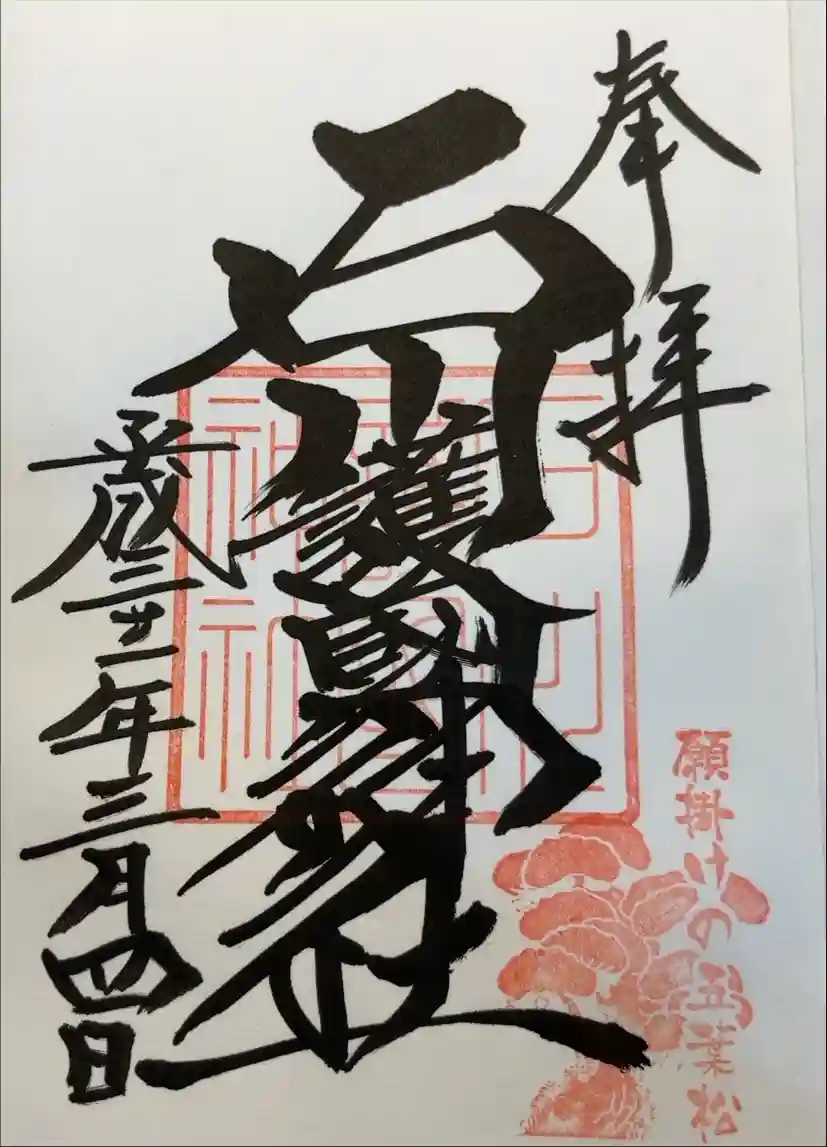 奉拝
護國神社
平成三十一年三月四日
願掛けの五葉松